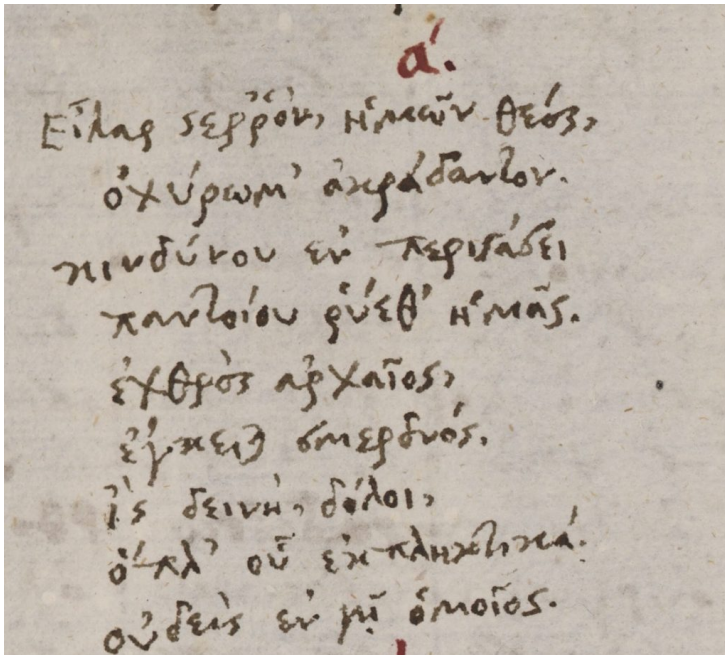 ά.
Εἶλαρ στερρὸν, ἡμῶν θεός,
ὀχύρωμ' ἀκράδαντον.
κινδύνου ἐν περιστάσει
παντοίου ῥύεθ' ἡμᾶς.
ἐχθρὸς ἀρχαῖος,
ἔγκειται σμερδνός.
ἲς δεινὴ, δόλοι,
ὅπλ' οὗ ἐκπληκτικά.
οὐδεὶς ἐν γῇ ὁμοῖος.